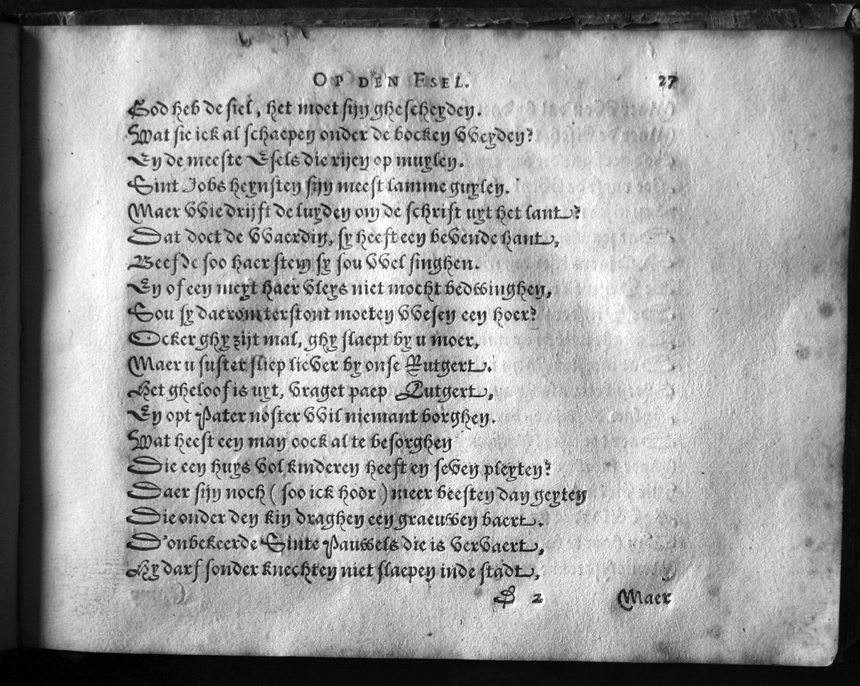 OP DEN ESEL. 27
God heb de siel, het moet sijn ghescheyden.
Wat sie ick al schaepen onder de bocken VVeyden?
En de meeste Esels die rijen op muylen.
Sint Jobs henghsten sijn meest lamme guylen.
Maer VVie drijft de luyden om de schrift uyt het lant?
Dat doet de VVaerdin, sy heeft een bevende hant,
Beefde soo haer stem sy sou VVel singhen.
En of een meyt haer vleys niet mocht bedwinghen,
Sou sy daerom terstont moeten VVesen een hoer?
Ocker ghy zijt mal, ghy slaept by u moer,
Maer u suster sliep liever by onse Rutgert.
Het gheloof is uyt, vraget paep Lutgert,
En opt Pater noster VVil niemant borghen.
Wat heeft een man oock al te besorghen
Die een huys vol kinderen heeft en seven pleyten?
Daer sijn noch (soo ick hoor) meer beesten dan geyten
Die onder den kin draghen een graeuwen baert.
D'onbekeerde Sinte Pauwels die is vervaert,
Hy darf sonder knechten niet slaepen inde stadt,
2 Maer